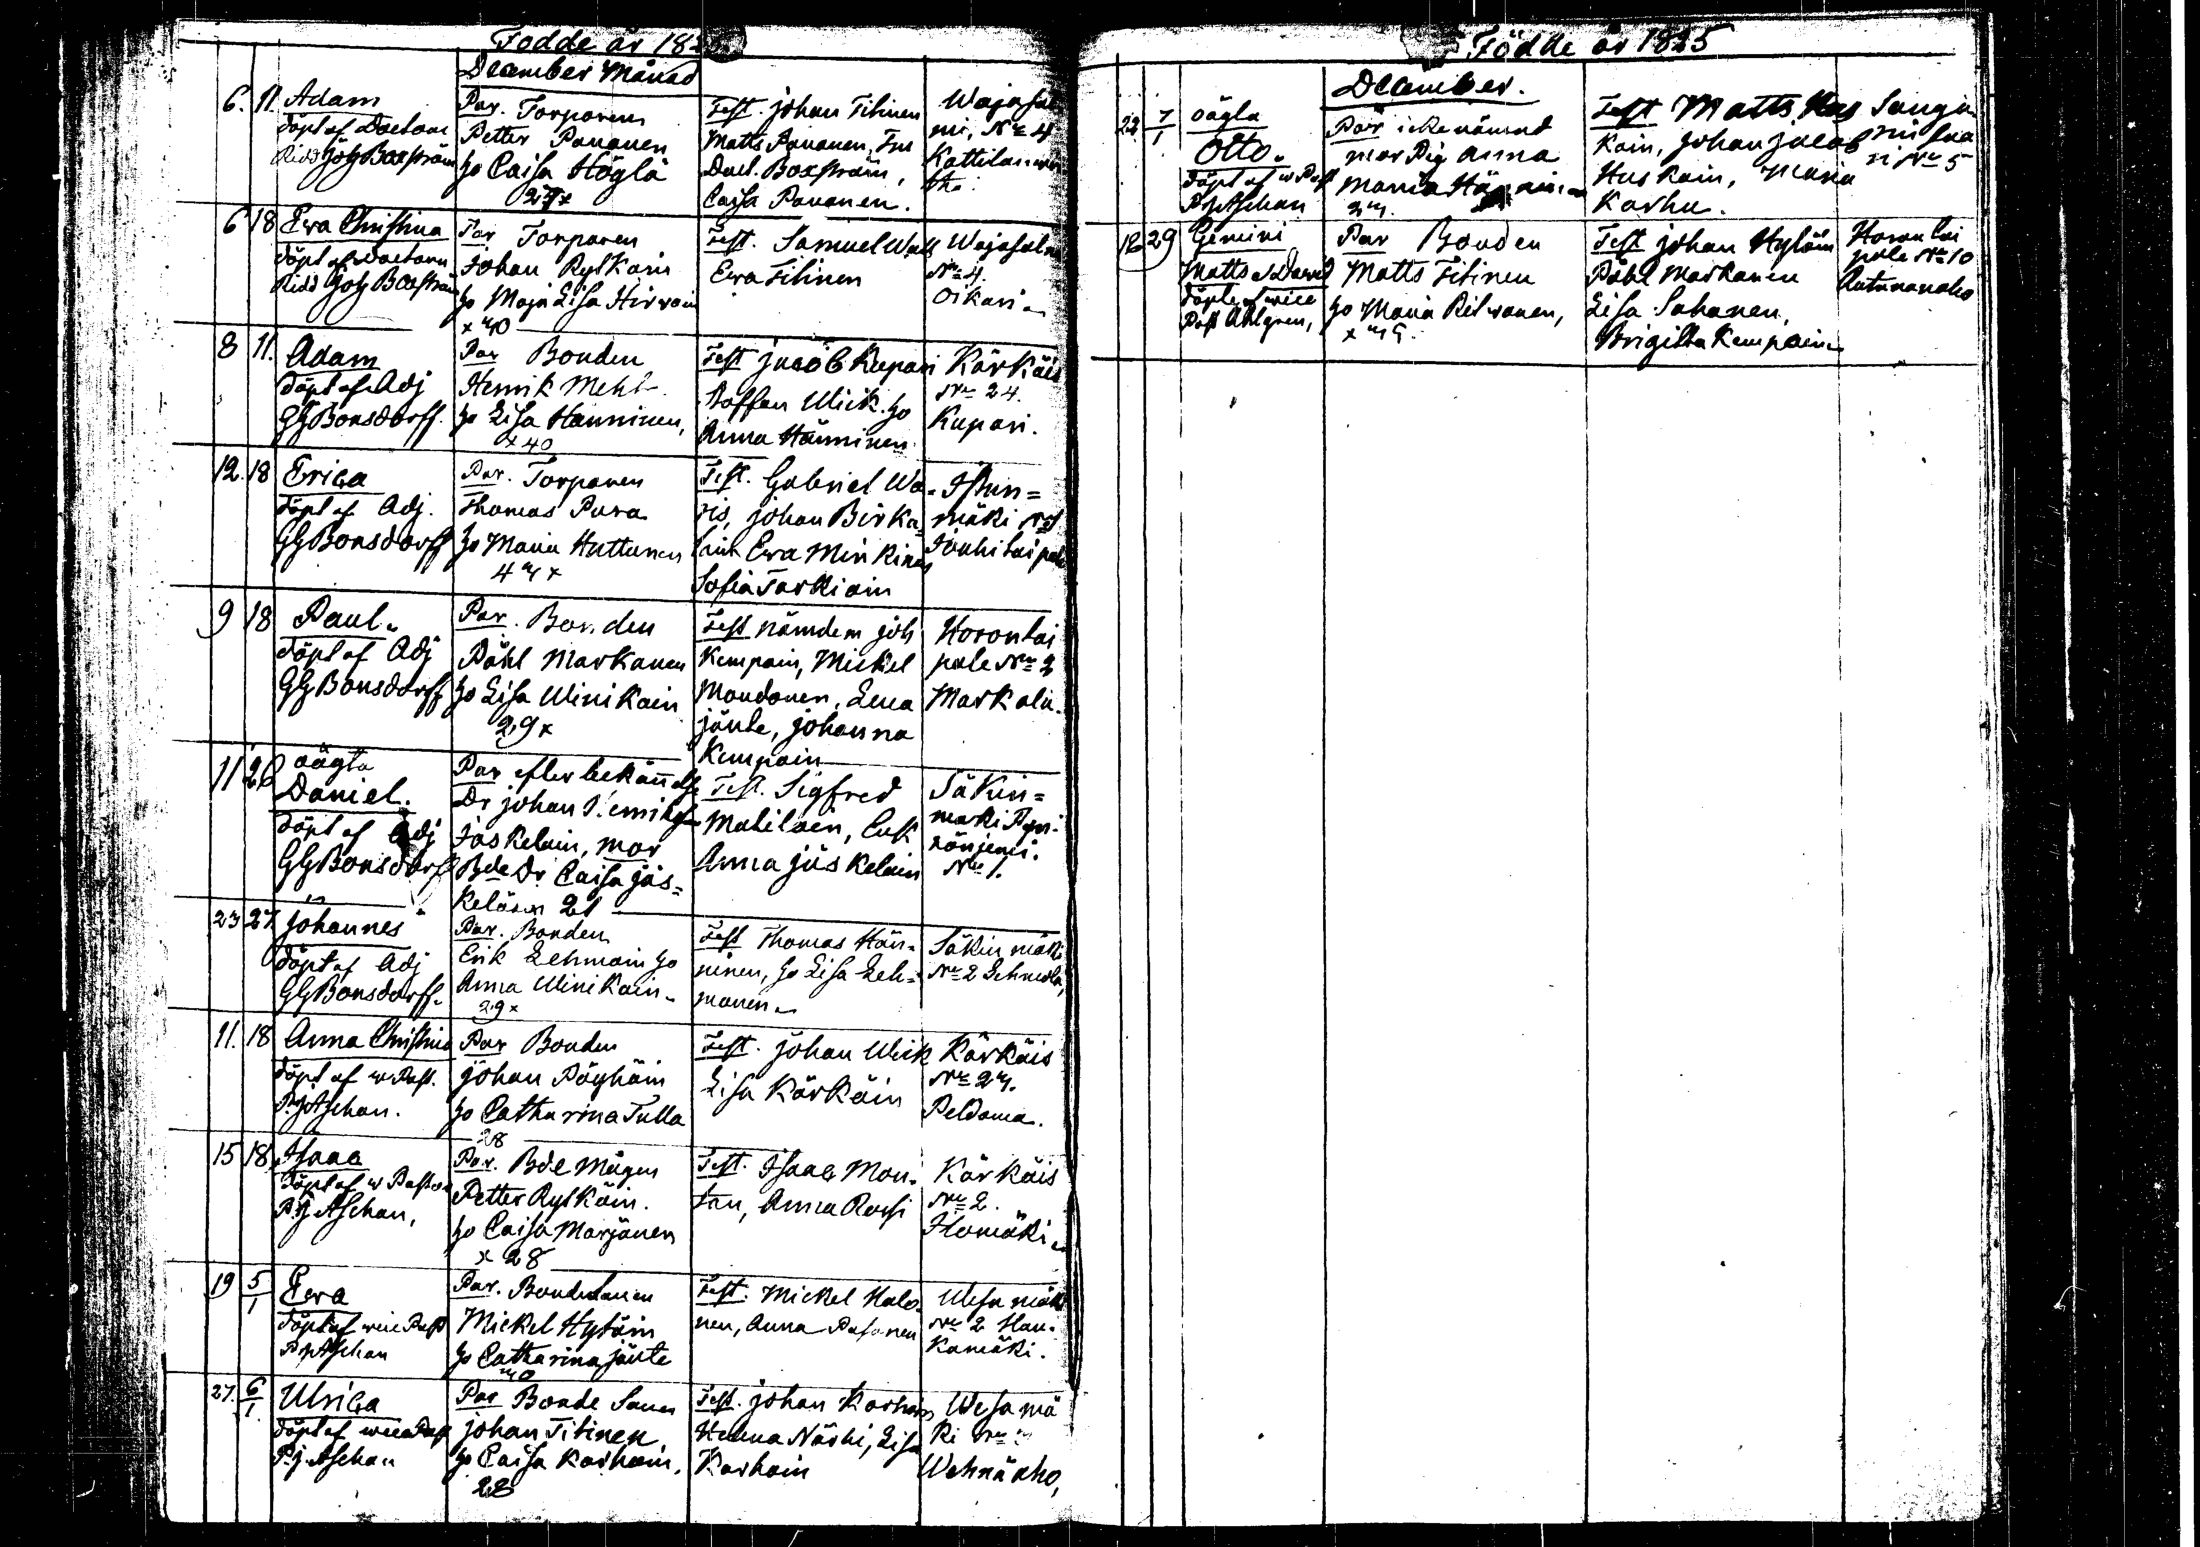 Födde år 18
December Månad
6. 11. Adam
döpt af Doctorn
Ridd Joh Boxström
Par. Torparen
Petter Pananen
ho Caisa Höglä
27x
Test. Johan Titinen
Matts Pananen, Fru
Doct. Boxström,
Caisa Pananen.
Wajasal
mi, No 4
6 18 Ewa Christina
döpt af Doctorn
Ridd Joh Boxström
Par Torparen
Johan Rytkoin
ho Maja Lisa Hirwoin
x 40
Test. Samuel Wall
Ewa Titinen
Wajasalmi
No 4.
Oikari
8 11. Adam
döpt af Adj
GG Bonsdorff.
Par Bonden
Henrik Meht
ho Lisa Hänninen,
x 40
Test Jacob Kupari
Staffan Wick. ho
Anna Hänninen
Kärkäis
No 24.
Kupari.
12. 18 Erica
döpt af Adj.
GG Bonsdorff
Par. Torparen
Thomas Pura
ho Maria Huttunen
Test. Gabriel Wa=
ris, Johan Birka=
lain Ewa Minkinen
Sofia Tarkiain
Istun=
mäki No
9 18 Paul.
döpt af Adj
GG Bonsdorff
Par. Bonden
Påhl Markanen
ho Lisa Winikain
29x
Test nämdem Joh
Kempain, Mickel
Mondonen, Lena
Jänte, Johanna
Kempain
Horontai
pale No 2
Markala.
11 26 oägta
Daniel.
döpt af Adj
GG Bonsdorff
Par efter bekännelse
Dr Johan Hemingsson
Jäskelain, mor
Bde Dr Caisa Jäs=
keläin 21
Test. Sigfred
Matilain, Enk
Anna Jäskelain
Säkin=
mäki
No 1.
23 27 Johannes
döpt af Adj
GG Bonsdorff.
Par. Bonden
Erik Lehmain ho
Anna Winikain.
29x
Test Thomas Hän=
ninen, ho Lisa Leh=
monen
Säkin mäki
No 2 Lehmola,
11. 18 Anna Christina
döpt af w Past.
PJ Aschan.
Par Bonden
Johan Pöyhöin
ho Catharina Tulla
28
Test. Johan Wick
Lisa Kärkäin
Kärkäis
Peldoma.
15 18 Isaac
döpt af w Pastor
PJ Aschan,
Par. Bde mågen
Petter Rytköin.
ho Caisa Marjänen
x 28
Test. Isaac Mon=
tan, Anna Rossi
Kärkäis
No 2.
Ilomäki
19 5/1 Ewa
döpt af vice Past
PJ Aschan
Par. Bondesonen
Mickel Hytöin
ho Catharina Jänte
40
Test. Mickel Halo=
nen, Anna Pasanen
Wesa mäki
No 2 Hau=
kamäki.
27. 6/1. Ulrica
döpt af vice Past
PJ Aschan
Par Bonde Sonen
Johan Titinen
ho Caisa Karhain,
28
Test. Johan Karhain
Helena Närhi, Lisa
Karhain
Wesa mä
ki No
Wehnä aho,
Födde år 1825
December.
22 7/1 oägta
Otto.
döpt af w Past
PJ Aschan
Par icke nämnd
mor Pig Anna
Maria
Test Matts Hus
kain, Johan Jacob
Huskain, Maria
Karhu.
No 5
18 29 Gemini
Matts o David
döpte af vice
Past Ahlgren,
Par Bonden
Matts Titinen
ho Maria Ritwanen,
Test Johan Hytöin
Påhl Markanen
Lisa Sahanen,
Brigitta Kempain
Horontai
pale No 10
Autunaaho